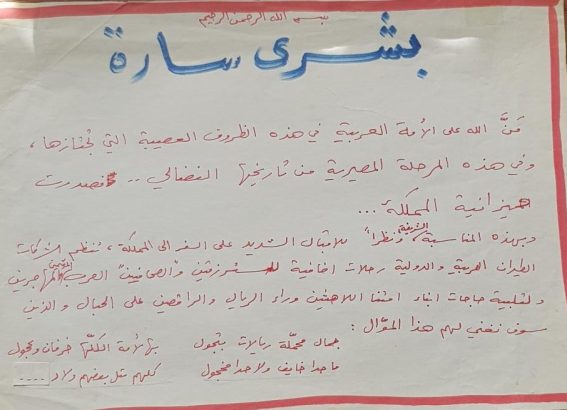 بسم الله الرحمن الرحيم
بشرى سارة
مَنَّ الله على الأمة العربية في هذه الظروف العصيبة التي تجتازها،
وفي هذه المرحلة المصيرية من تاريخها النضالي .. فصدرت
ميزانية المملكة...
وبهذه المناسبة الشريفة ونظراً للاقبال الشديد على السفر الى المملكة، تنظم شركات
الطيران العربية والدولية رحلات اضافية للمسترزقين والصحافيين العرب المهاجرين
ولتلبية حاجات ابناء امتنا اللاهثين وراء الريال والراقصين على الحبال والذين
سوف نغني لهم هذا الموّال :
جمال محمّلة ريالات بتجول بهالأمة الكلّها خرفان وعجول
ما حدا خايف ولا حدا مخجول كلهم مثل بعضهم ولاد ....